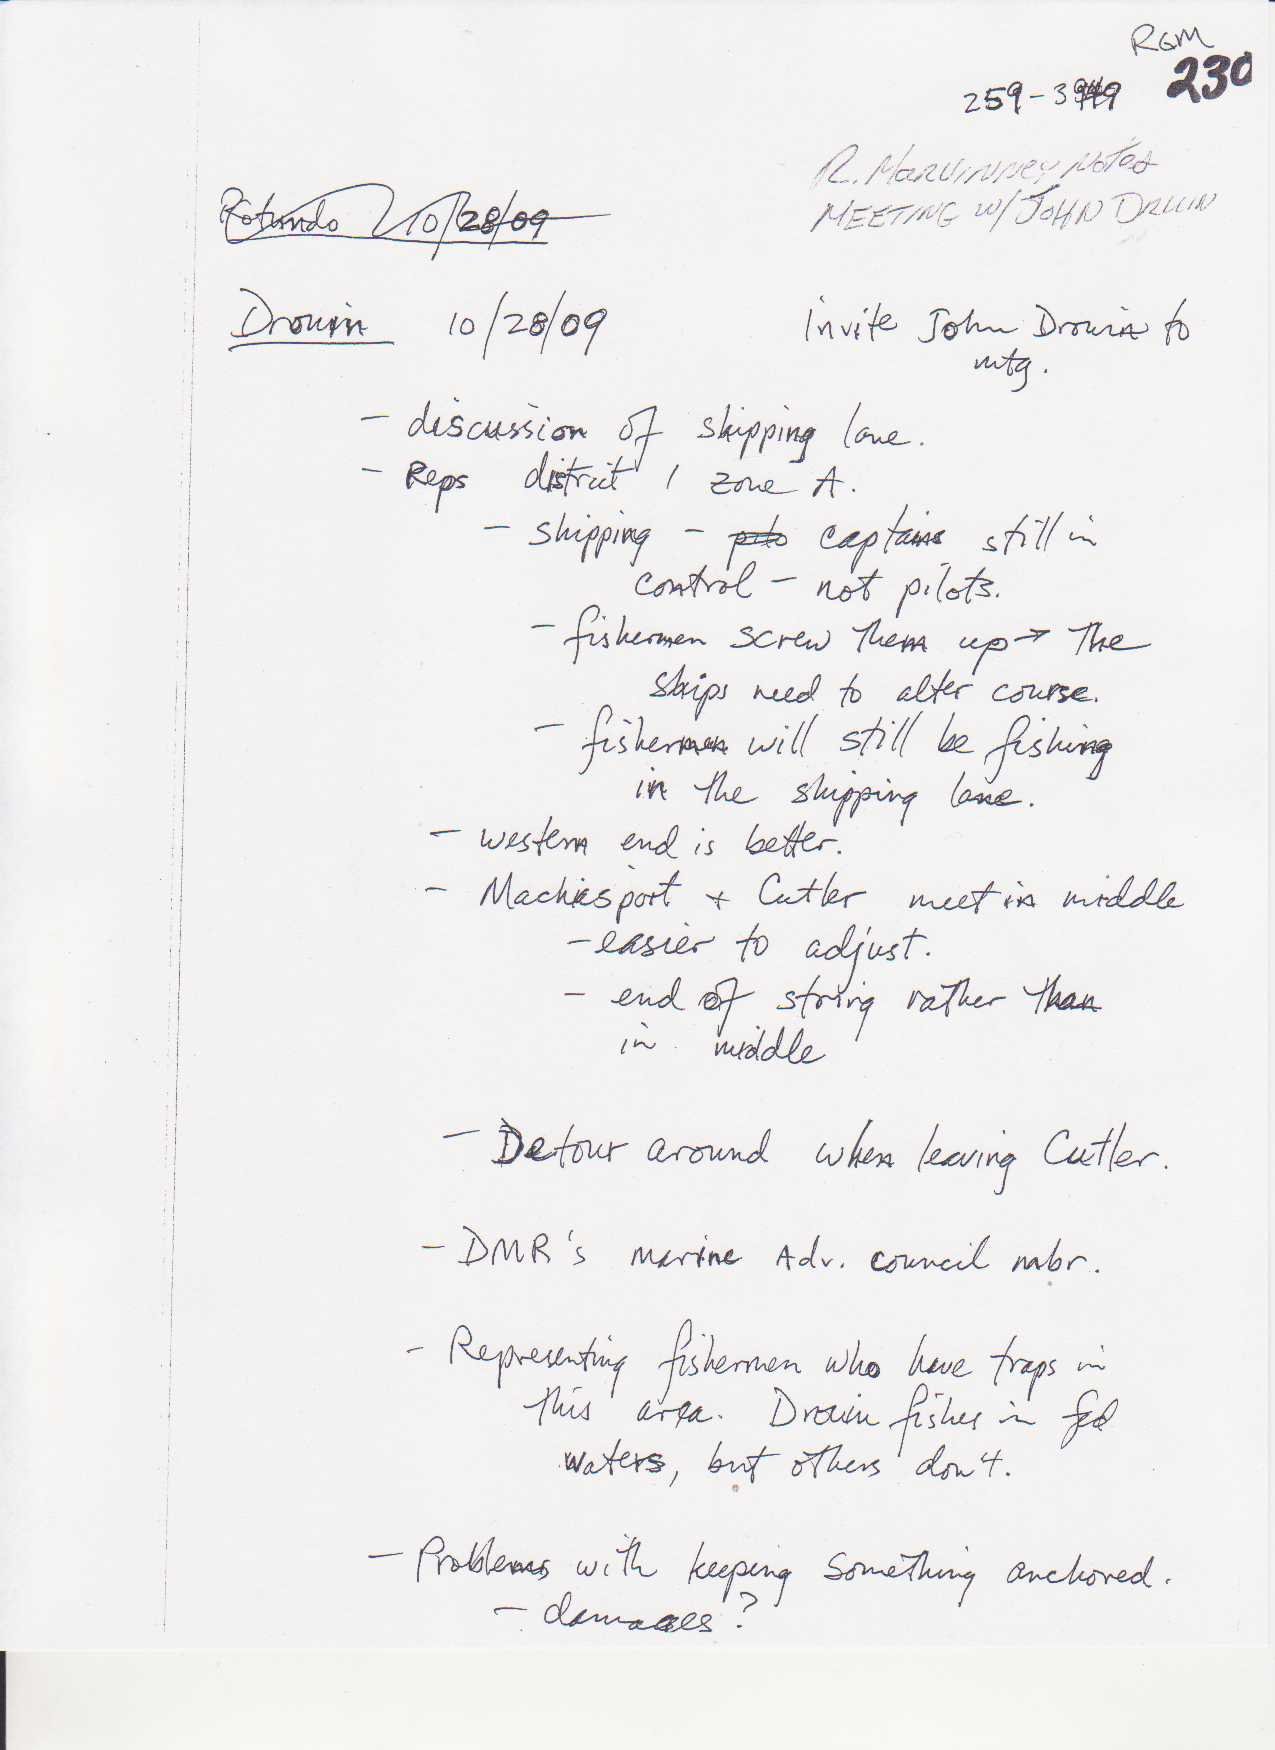 RGM
230
259-3949
R. MARVINNEY NOTES
MEETING W/ JOHN DROUIN
Rotundo 10/28/09
Drouin 10/28/09
invite John Drouin to
mtg.
- discussion of shipping lane.
- Reps district 1 zone A.
- shipping - pilo captains still in
control - not pilots.
- fishermen screw them up → the
ships need to alter course.
- fishermen will still be fishing
in the shipping lane.
- western end is better.
- Machiasport + Cutler meet in middle
- easier to adjust.
- end of string rather than
in middle
- Detour around when leaving Cutler.
- DMR's marine Adv. council mbr.
- Representing fishermen who have traps in
this area. Drouin fishes in fed
waters, but others don't.
- Problems with keeping something anchored.
- damages?